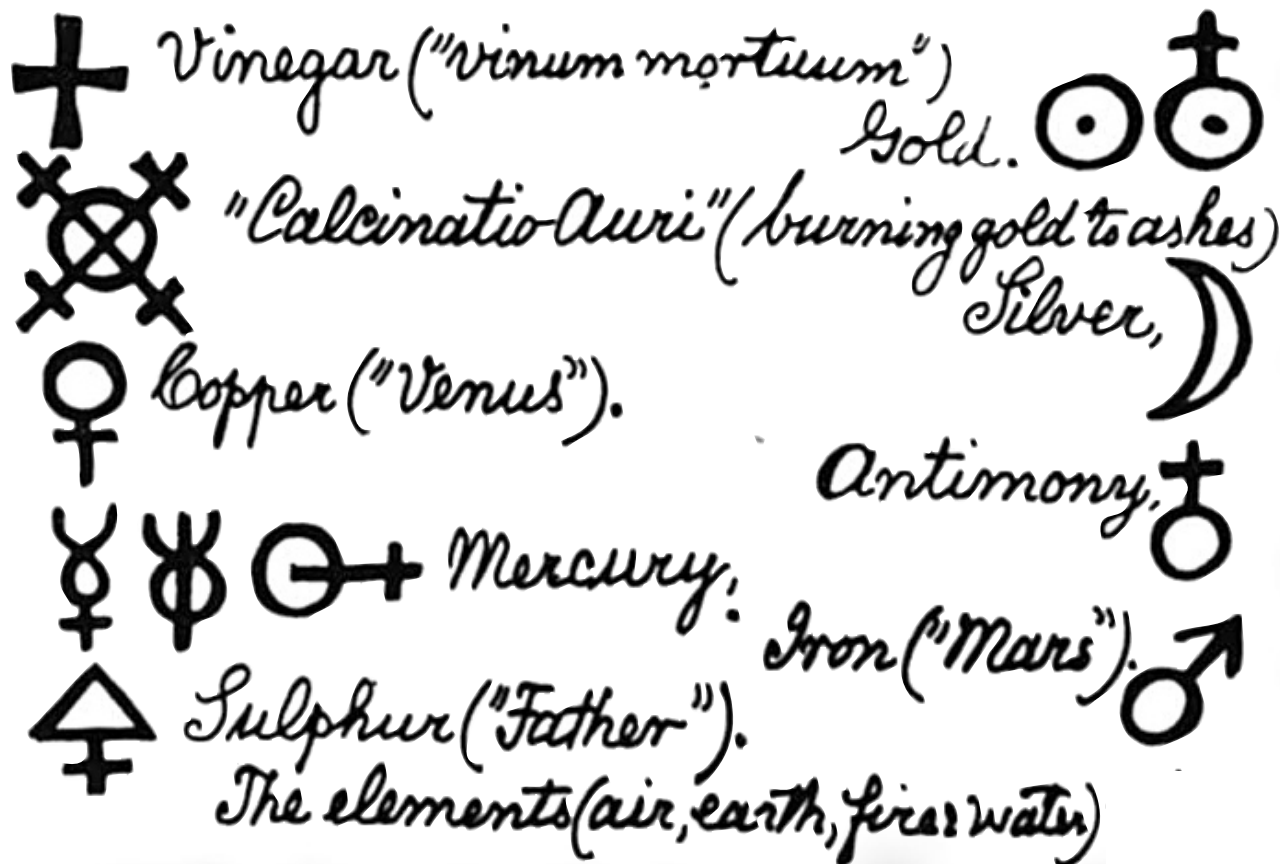 Vinegar ("vinum mortuum")
Gold.
"Calcinatio Auri" (burning gold to ashes)
Silver,
Copper ("Venus").
Antimony,
Mercury;
Iron ("Mars").
Sulphur ("Father").
The elements (air, earth, fire & water)